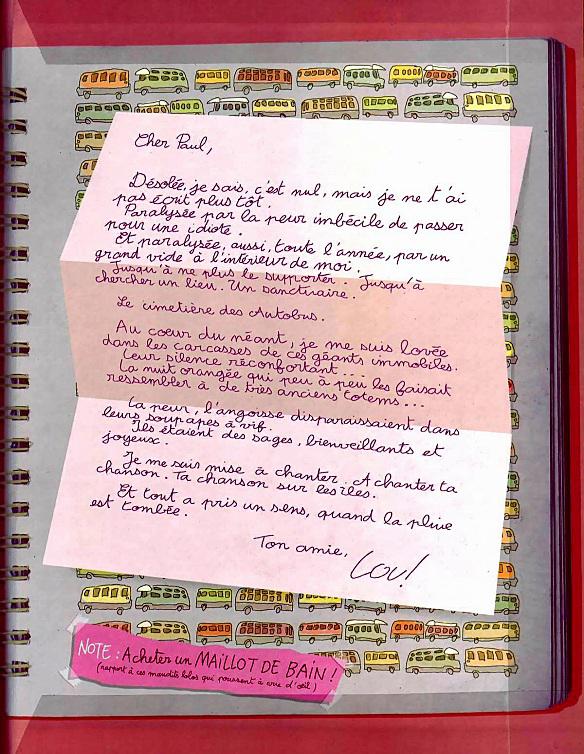 Cher Paul,
Désolée, je sais, c'est nul, mais je ne t'ai
pas écrit plus tôt.
Paralysée par la peur imbécile de passer
pour une idiote.
Et paralysée, aussi, toute l'année, par un
grand vide à l'intérieur de moi.
Jusqu'à ne plus le supporter. Jusqu'à
chercher un lieu. Un sanctuaire.
Le cimetière des Autobus.
Au cœur du néant, je me suis lovée
dans les carcasses de ces géants immobiles.
Leur silence réconfortant...
La nuit orangée qui peu à peu les faisait
ressembler à de très anciens totems...
La peur, l'angoisse disparaissaient dans
leurs soupapes à vif.
Ils étaient des sages, bienveillants et
joyeux.
Je me suis mise à chanter. A chanter ta
chanson. Ta chanson sur les îles.
Et tout a pris un sens, quand la pluie
est tombée.
Ton amie,
Lou!
NOTE : Acheter un MAILLOT DE BAIN !
(rapport à ces maudits lolos qui poussent à vue d'œil)